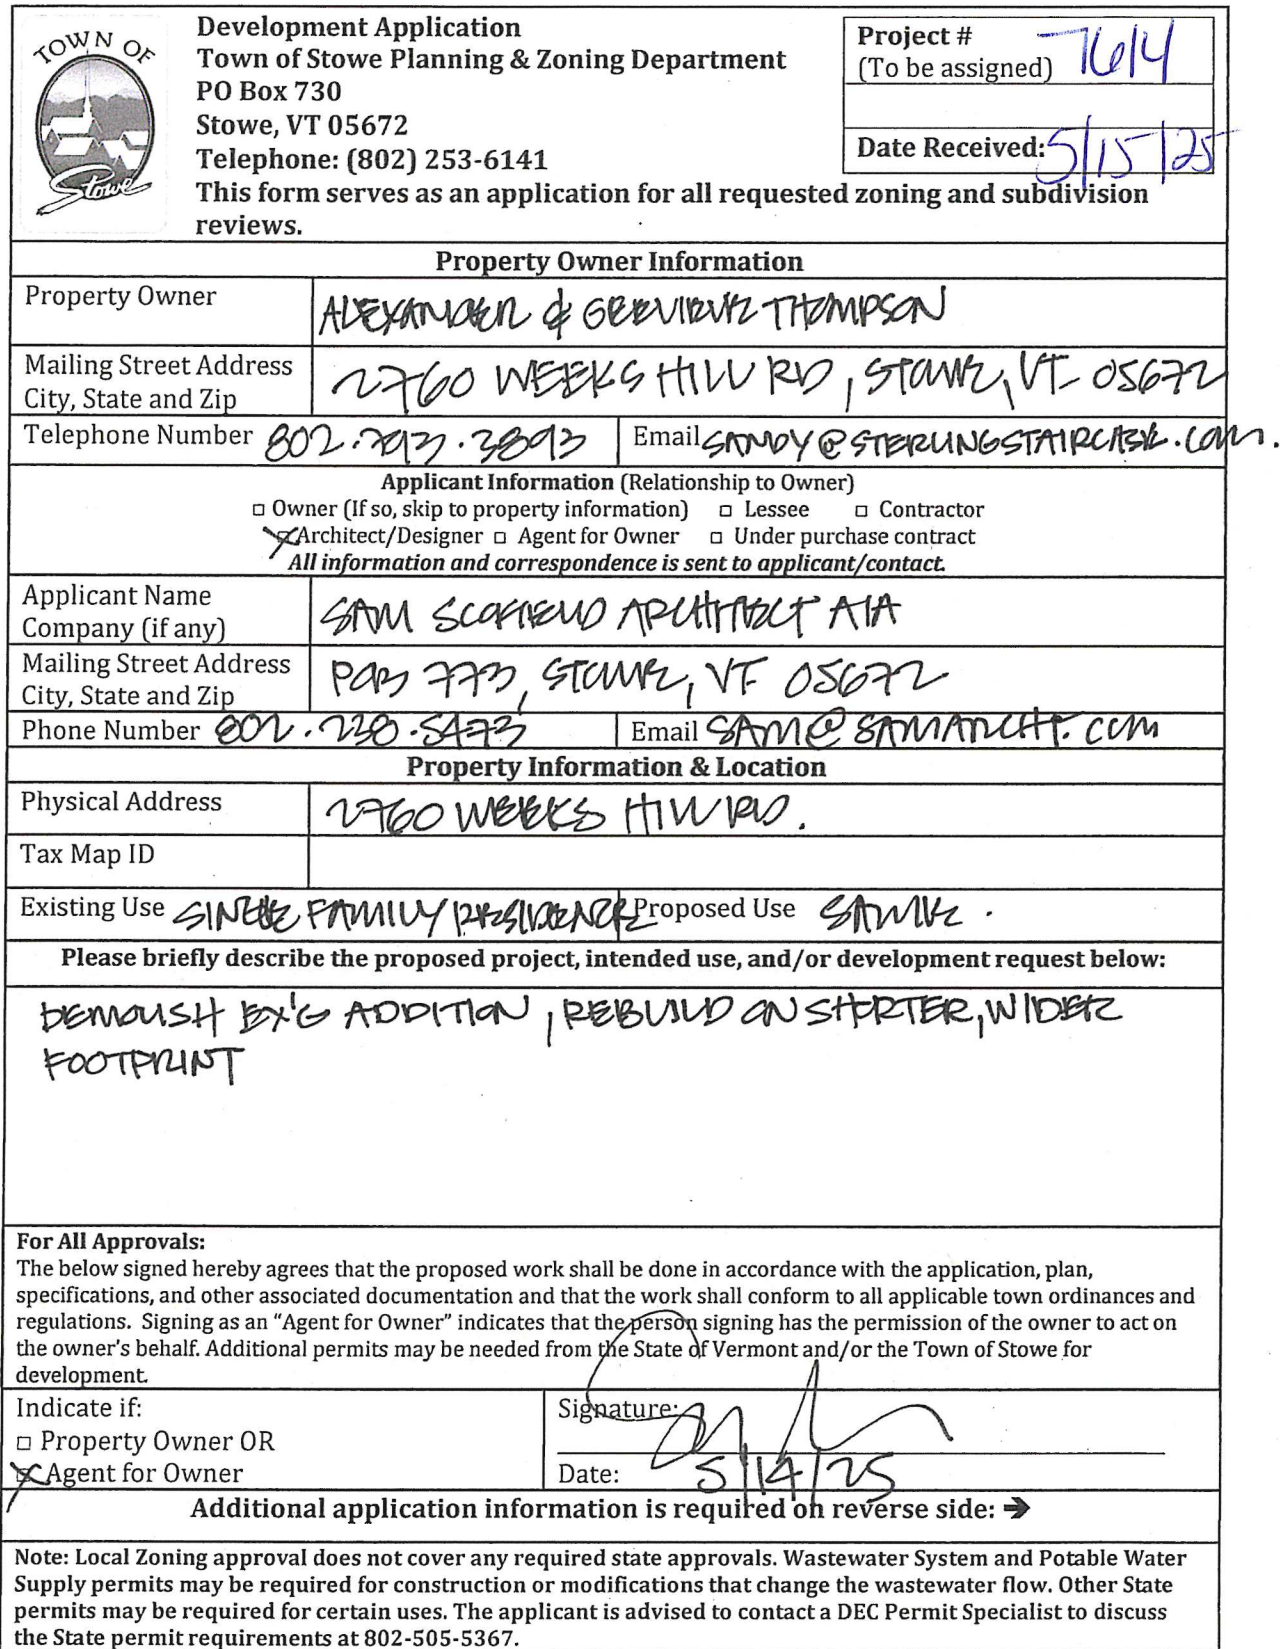 TOWN OF
Stowe
Development Application
Town of Stowe Planning & Zoning Department
PO Box 730
Stowe, VT 05672
Telephone: (802) 253-6141
This form serves as an application for all requested zoning and subdivision
reviews.
Project # 7614
(To be assigned)
Date Received: 5/15/25
Property Owner Information
Property Owner ALEXANDER & THOMPSON
Mailing Street Address 2760 WEEKS HILL RD, STOWE, VT 05672
City, State and Zip
Telephone Number 802. .3893 Email SANDY@STERLINGSTAIRCASE.COM.
Applicant Information (Relationship to Owner)
□ Owner (If so, skip to property information) □ Lessee □ Contractor
☒ Architect/Designer □ Agent for Owner □ Under purchase contract
All information and correspondence is sent to applicant/contact.
Applicant Name SAM SCOFIELD ARCHITECT AIA
Company (if any)
Mailing Street Address POB 773, STOWE, VT 05672
City, State and Zip
Phone Number 802. .5473 Email SAM@SAMARCHT.COM
Property Information & Location
Physical Address 2760 WEEKS HILL RD.
Tax Map ID
Existing Use SINGLE FAMILY RESIDENCE Proposed Use SAME.
Please briefly describe the proposed project, intended use, and/or development request below:
DEMOLISH EX'G ADDITION, REBUILD ON SHORTER, WIDER
FOOTPRINT
For All Approvals:
The below signed hereby agrees that the proposed work shall be done in accordance with the application, plan,
specifications, and other associated documentation and that the work shall conform to all applicable town ordinances and
regulations. Signing as an “Agent for Owner” indicates that the person signing has the permission of the owner to act on
the owner's behalf. Additional permits may be needed from the State of Vermont and/or the Town of Stowe for
development.
Indicate if:
□ Property Owner OR
☒ Agent for Owner
Signature:
Date: 5/14/25
Additional application information is required on reverse side: ➔
Note: Local Zoning approval does not cover any required state approvals. Wastewater System and Potable Water
Supply permits may be required for construction or modifications that change the wastewater flow. Other State
permits may be required for certain uses. The applicant is advised to contact a DEC Permit Specialist to discuss
the State permit requirements at 802-505-5367.